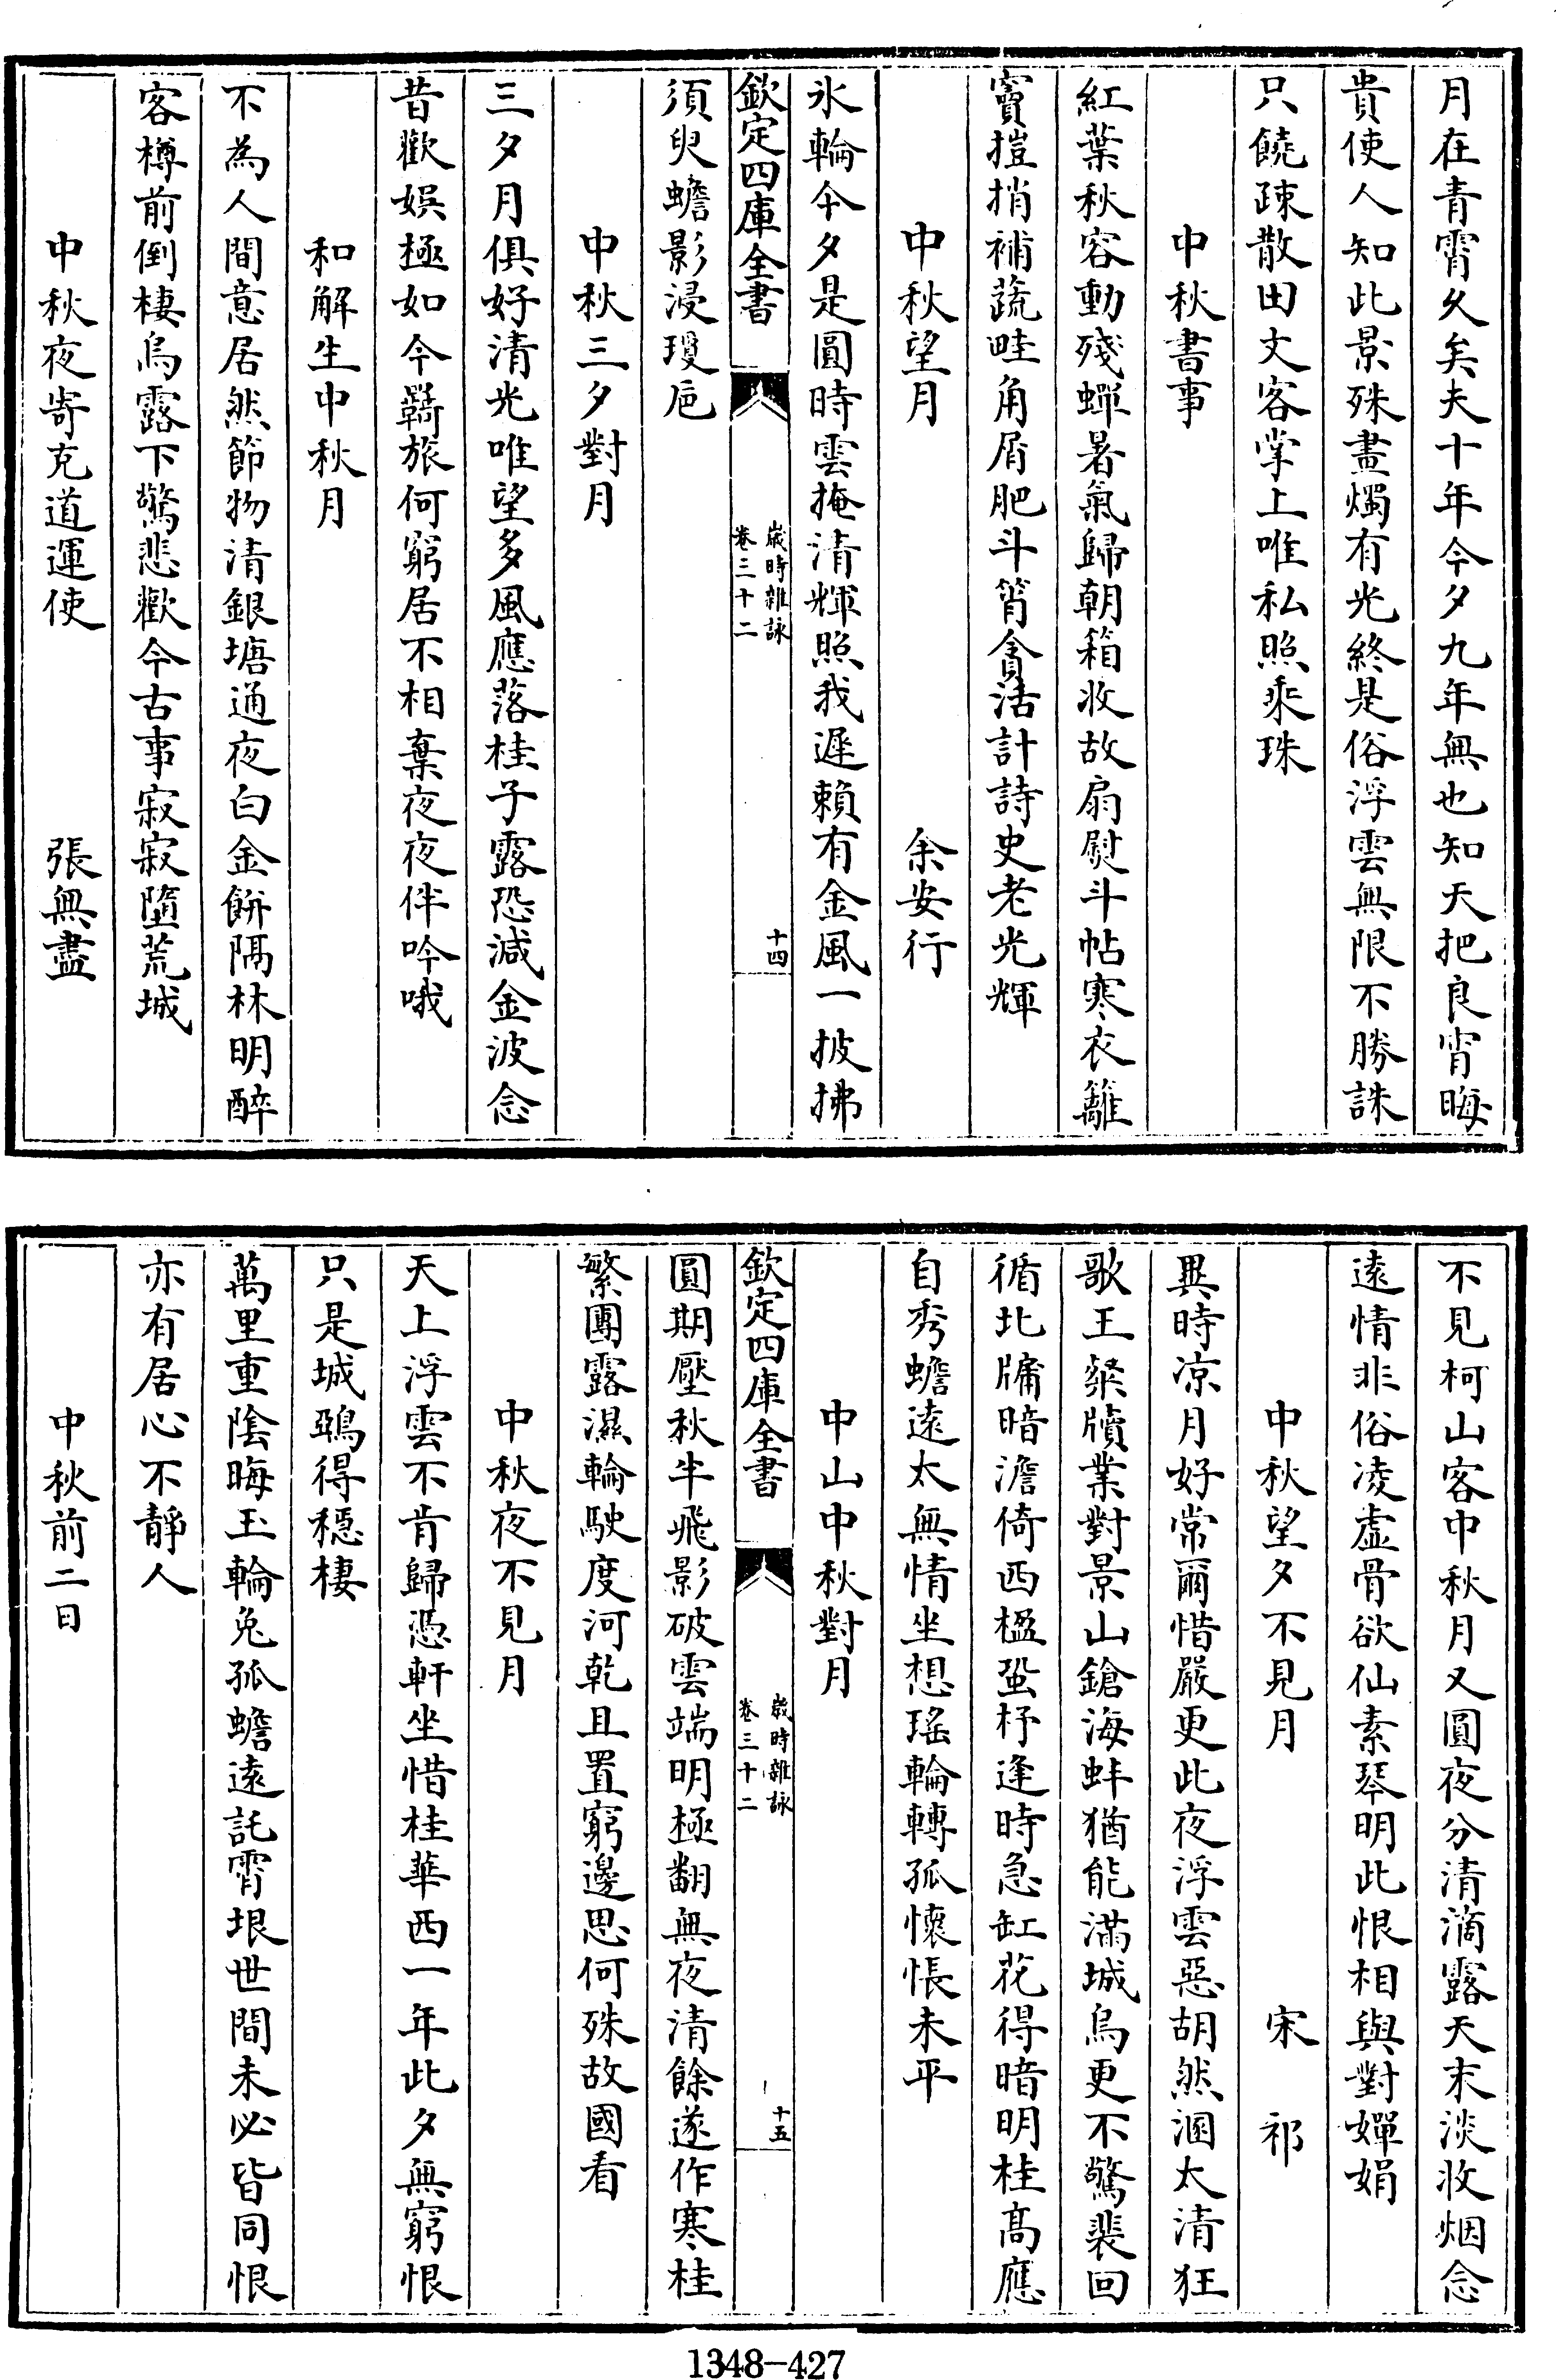 月在青霄久矣夫十年今夕九年無也知天把良宵晦
貴使人知此景殊畫燭有光終是俗浮雲無限不勝誅
只饒疎散田文客掌上唯私照乘珠
中秋書事
紅葉秋容動殘蟬暑氣歸朝箱收故扇熨斗帖寒衣籬
竇揎捎補蔬畦角屑肥斗筲貪活計詩史老光輝
中秋望月 余安行
氷輪今夕是圓時雲掩清輝照我遲賴有金風一披拂
欽定四庫全書
歲時雜詠
卷三十二
十四
須臾蟾影浸瓊巵
中秋三夕對月
三夕月俱好清光唯望多風應落桂子露恐減金波念
昔歡娛極如今羇旅何窮居不相棄夜夜伴吟哦
和解生中秋月
不為人間意居然節物清銀塘通夜白金餅隔林明醉
客樽前倒棲烏露下驚悲歡今古事寂寂墮荒城
中秋夜寄充道運使 張無盡
不見柯山客中秋月又圓夜分清滴露天末淡收烟念
遠情非俗凌虛骨欲仙素琴明此恨相與對嬋娟
中秋望夕不見月 宋 祁
異時凉月好常爾惜嚴更此夜浮雲惡胡然溷太清狂
歌王粲牘業對景山鎗海蚌猶能滿城烏更不驚裴回
循北牖暗澹倚西楹蛩杼逢時急缸花得暗明桂髙應
自秀蟾遠太無情坐想瑤輪轉孤懷悵未平
中山中秋對月
欽定四庫全書
歲時雜詠
卷三十二
十五
圓期壓秋半飛影破雲端明極翻無夜清餘遂作寒桂
繁團露濕輪駛度河乾且置窮邊思何殊故國看
中秋夜不見月
天上浮雲不肯歸憑軒坐惜桂華西一年此夕無窮恨
只是城鵶得穩棲
萬里重陰晦玉輪兔孤蟾遠託霄垠世間未必皆同恨
亦有居心不靜人
中秋前二日
1348-427